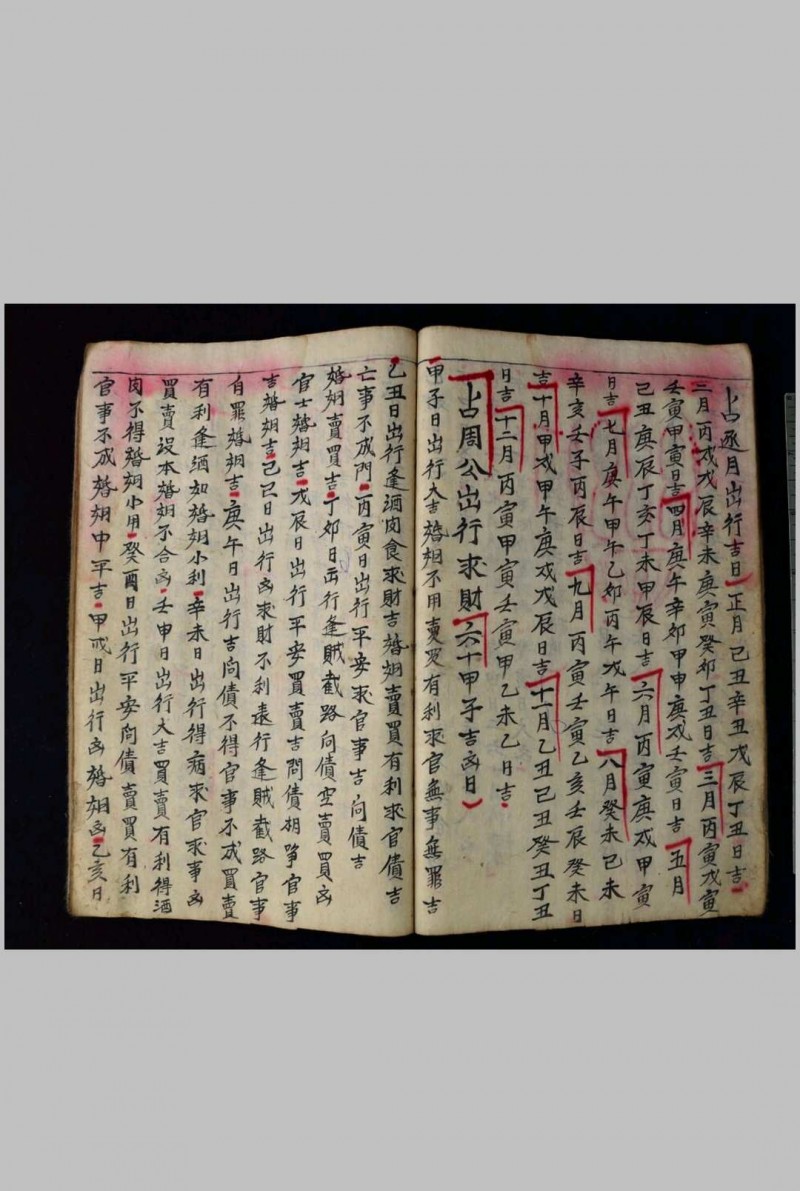 占逐月出行吉日正月己丑辛丑戊辰丁丑日吉
二月丙戌戊辰辛未庚寅癸卯丁丑日吉三月丙寅戊寅
壬寅甲寅日吉四月庚午辛卯甲申庚戌壬寅日吉五月
己丑庚辰丁亥丁未甲辰日吉六月丙寅庚戌甲寅
日吉七月庚午甲午乙卯丙午戊午日吉八月癸未己未
辛亥壬子丙辰日吉九月丙寅壬寅乙亥壬辰癸未日
吉十月甲戌甲午庚戌戊辰日吉十一月乙丑己丑癸丑丁丑
日吉十二月丙寅甲寅壬寅甲乙未乙日吉
占周公出行求財六十甲子吉凶日
甲子日出行大吉婚姻不用賣買有利求官無事無罪吉
乙丑日出行逢酒肉食求財吉婚姻賣買有利求官債吉
亡事不成鬥丙寅日出行平安求官事吉向債吉
婚姻賣買吉丁卯日出行逢賊截路向債空賣買凶
官士婚姻吉戊辰日出行平安買賣吉問債胡爭官事
吉婚姻吉己巳日出行凶求財不利遠行逢賊截路官事
自罪婚姻吉庚午日出行吉向債不得官事不成買賣
有利逢酒如婚姻小利辛未日出行得病求官求事凶
買賣没本婚姻不合凶壬申日出行大吉買賣有利得酒
肉不得婚姻小用癸酉日出行平安向債賣買有利
官事不成婚姻中平吉甲戌日出行凶婚姻凶乙亥日